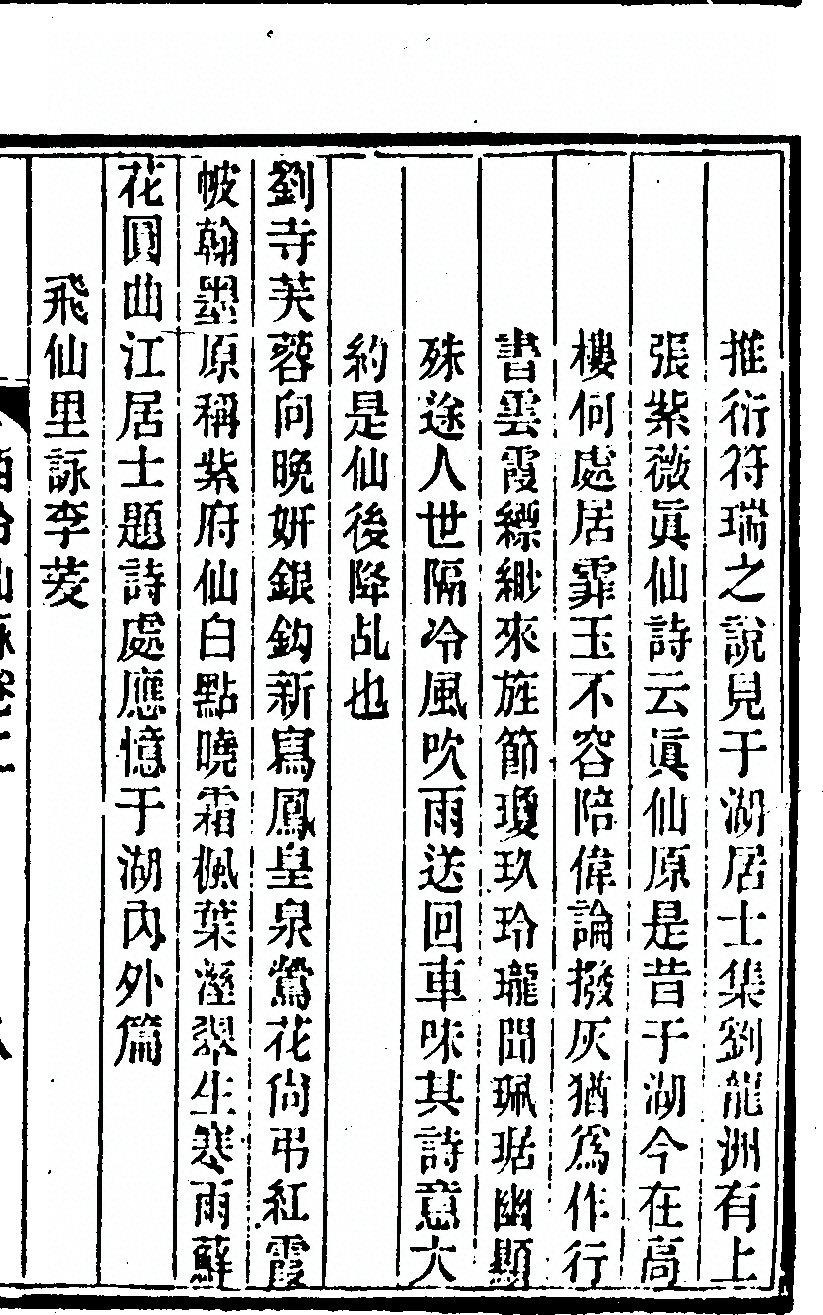 推衍符瑞之說見于湖居士集劉龍洲有上
張紫薇眞仙詩云眞仙原是昔于湖今在高
樓何處居霏玉不容陪偉論撥灰猶爲作行
書雲霞縹緲來旌節瓊玖玲瓏聞珮琚幽顯
殊途人世隔冷風吹雨送回車味其詩意大
約是仙後降乩也
劉寺芙蓉向晚妍銀鈎新寫鳳皇泉鶯花尙弔紅霞
帔翰墨原稱紫府仙白點曉霜楓葉溼翠生寒雨蘚
花圓曲江居士題詩處應憶于湖內外篇
飛仙里詠李茇